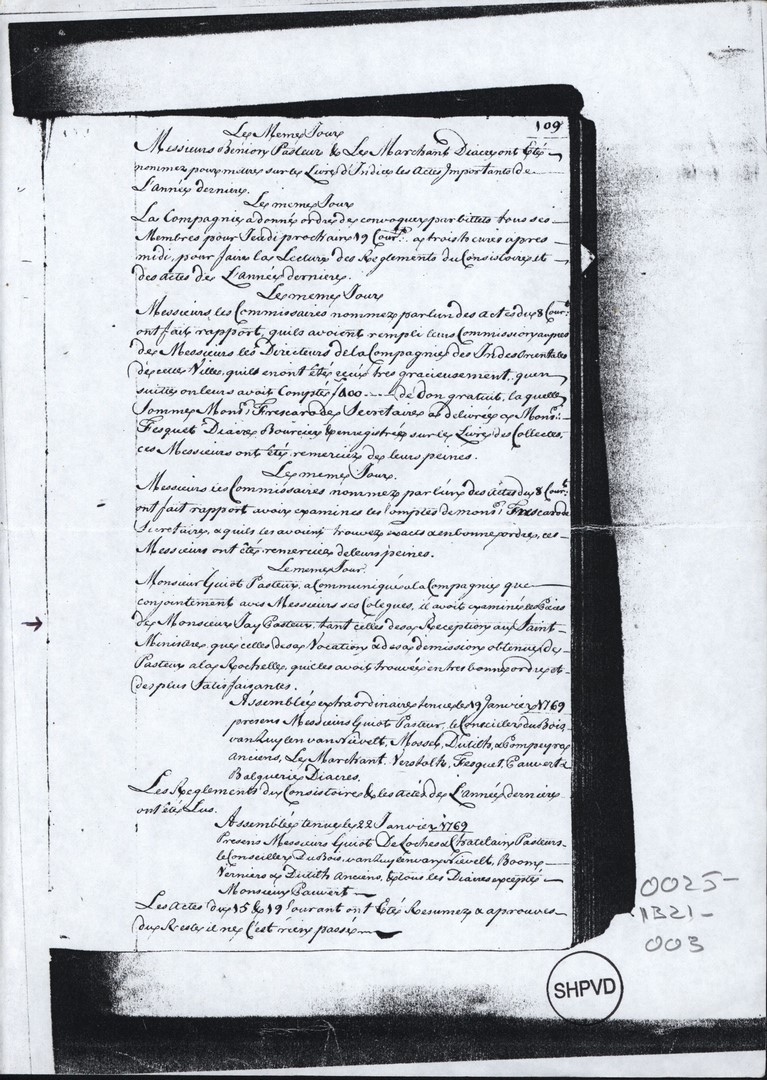 109
Le Meme Jour
Messieurs Binion Pasteur & Le Marchant Diacre ont Eté
nommez pour mettre sur le Livre d'Indice les Actes Importants de
L'année derniere.
Le meme Jour
La Compagnie a donné ordre de convoquer par billets tous ses
Membres pour Jeudi prochain 19 Court. a trois heures apres
midi, pour faire la Lecture des Reglements du Consistoire et
des actes de L'année derniere.
Le meme Jour
Messieurs les Commissaires nommez par lun des actes du 8 Court:
ont fait rapport, quils avoient rempli leur Commission aupres
de Messieurs les Directeurs de la Compagnie des Indes Orientales
de cette Ville, quils en ont été reçus tres gracieusement, quen
suitte on leurs avoit Compté f400.— de Don gratuit, laquelle
Somme Monsr. Frescarode Secretaire a delivrée a Monsr.
Fesquet Diacre Boursier & enregistrée sur le Livre des Collectes,
ces Messieurs ont été remerciez de leurs peines.
Le meme Jour.
Messieurs les Commissaires nommez par l'un des actes du 8 Court:
ont fait rapport avoir examinés les Comptes de monsr. Frescarode
Secretaire, & quils les avoient trouvez exacts & en bonne ordre, ces
Messieurs ont été remerciez de leurs peines.
Le meme Jour.
Monsieur Guiot Pasteur, a Communiqué a la Compagnie que
conjointement avec Messieurs ses Colegues, il avoit examiné les Pieces
de Monsieur Jay Pasteur, tant celles de sa Reception au Saint
Ministere, que celles de sa Vocation & de sa demission obtenue de
Pasteur a la Rochelle, quil les avoit trouvée en tres bonne ordre et
des plus satisfaisantes.
Assemblée extraordinaire tenue le 19 Janvier 1769
presens Messieurs Guiot Pasteur, le Conseiller du Bois,
van Zuylen van Nievelt, Mossel, Dutilh, & Pompeyre
anciens, Le Marchant, Verstolk, Fesquet, Pauvert &
Balguerie Diacres.
Les Reglements du Consistoire & les actes de L'année derniere
ont été Lus.
Assemblée tenue le 22 Janvier 1769
Presens Messieurs Guiot De Loches & Chatelain Pasteurs
le Conseiller Du Bois, van Zuylen van Nievelt, Boom
Verniers & Dutilh anciens, & tous les Diacres excepté
Monsieur Pauvert
Les Actes du 15 & 19 Courant ont Eté Resumez & aprouvez
du Reste il ne C'est rien passé
0025-
1321-
003
SHPVD